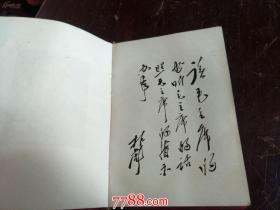 读毛主席的
书听毛主席的话
照毛主席的指示
办事
林彪
788go.com